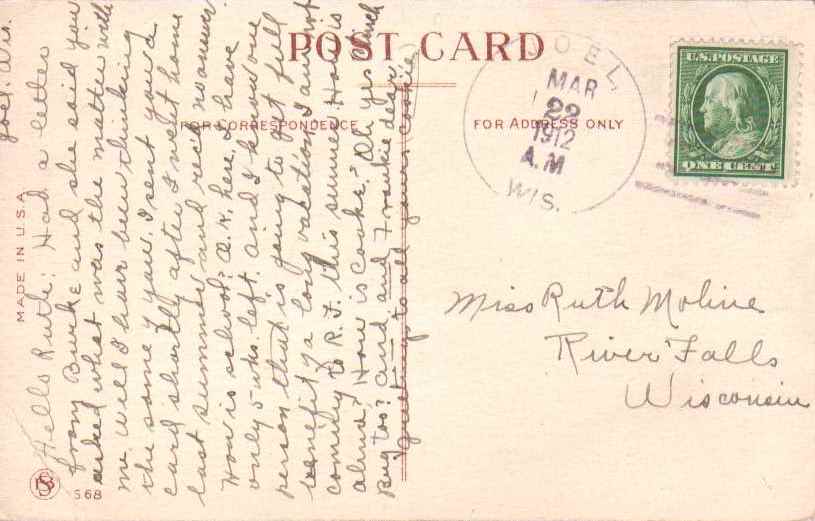 POST CARD
FOR CORRESPONDENCE
FOR ADDRESS ONLY
MADE IN U.S.A.
S 68
JOEL
MAR
22
1912
A.M
WIS.
U.S. POSTAGE
ONE CENT
Miss Ruth Moline
River Falls
Wisconsin
Joel, Wis.
Hello Ruth: Had a letter
from Burke and she said you
asked what was the matter with
me. Will I have been thinking
the same of you. I sent you a
card shortly after I went home
last summer and rec'd no answer.
How is school? O.K. here. I have
only 5 wks. left and I know one
person that is going to get full
benefit of a long vacation. I am not
coming to R.F. this summer. How is
Alma? How is Cooke? Oh yes
Bug too? and and Frankie dear
Greetings to all yours